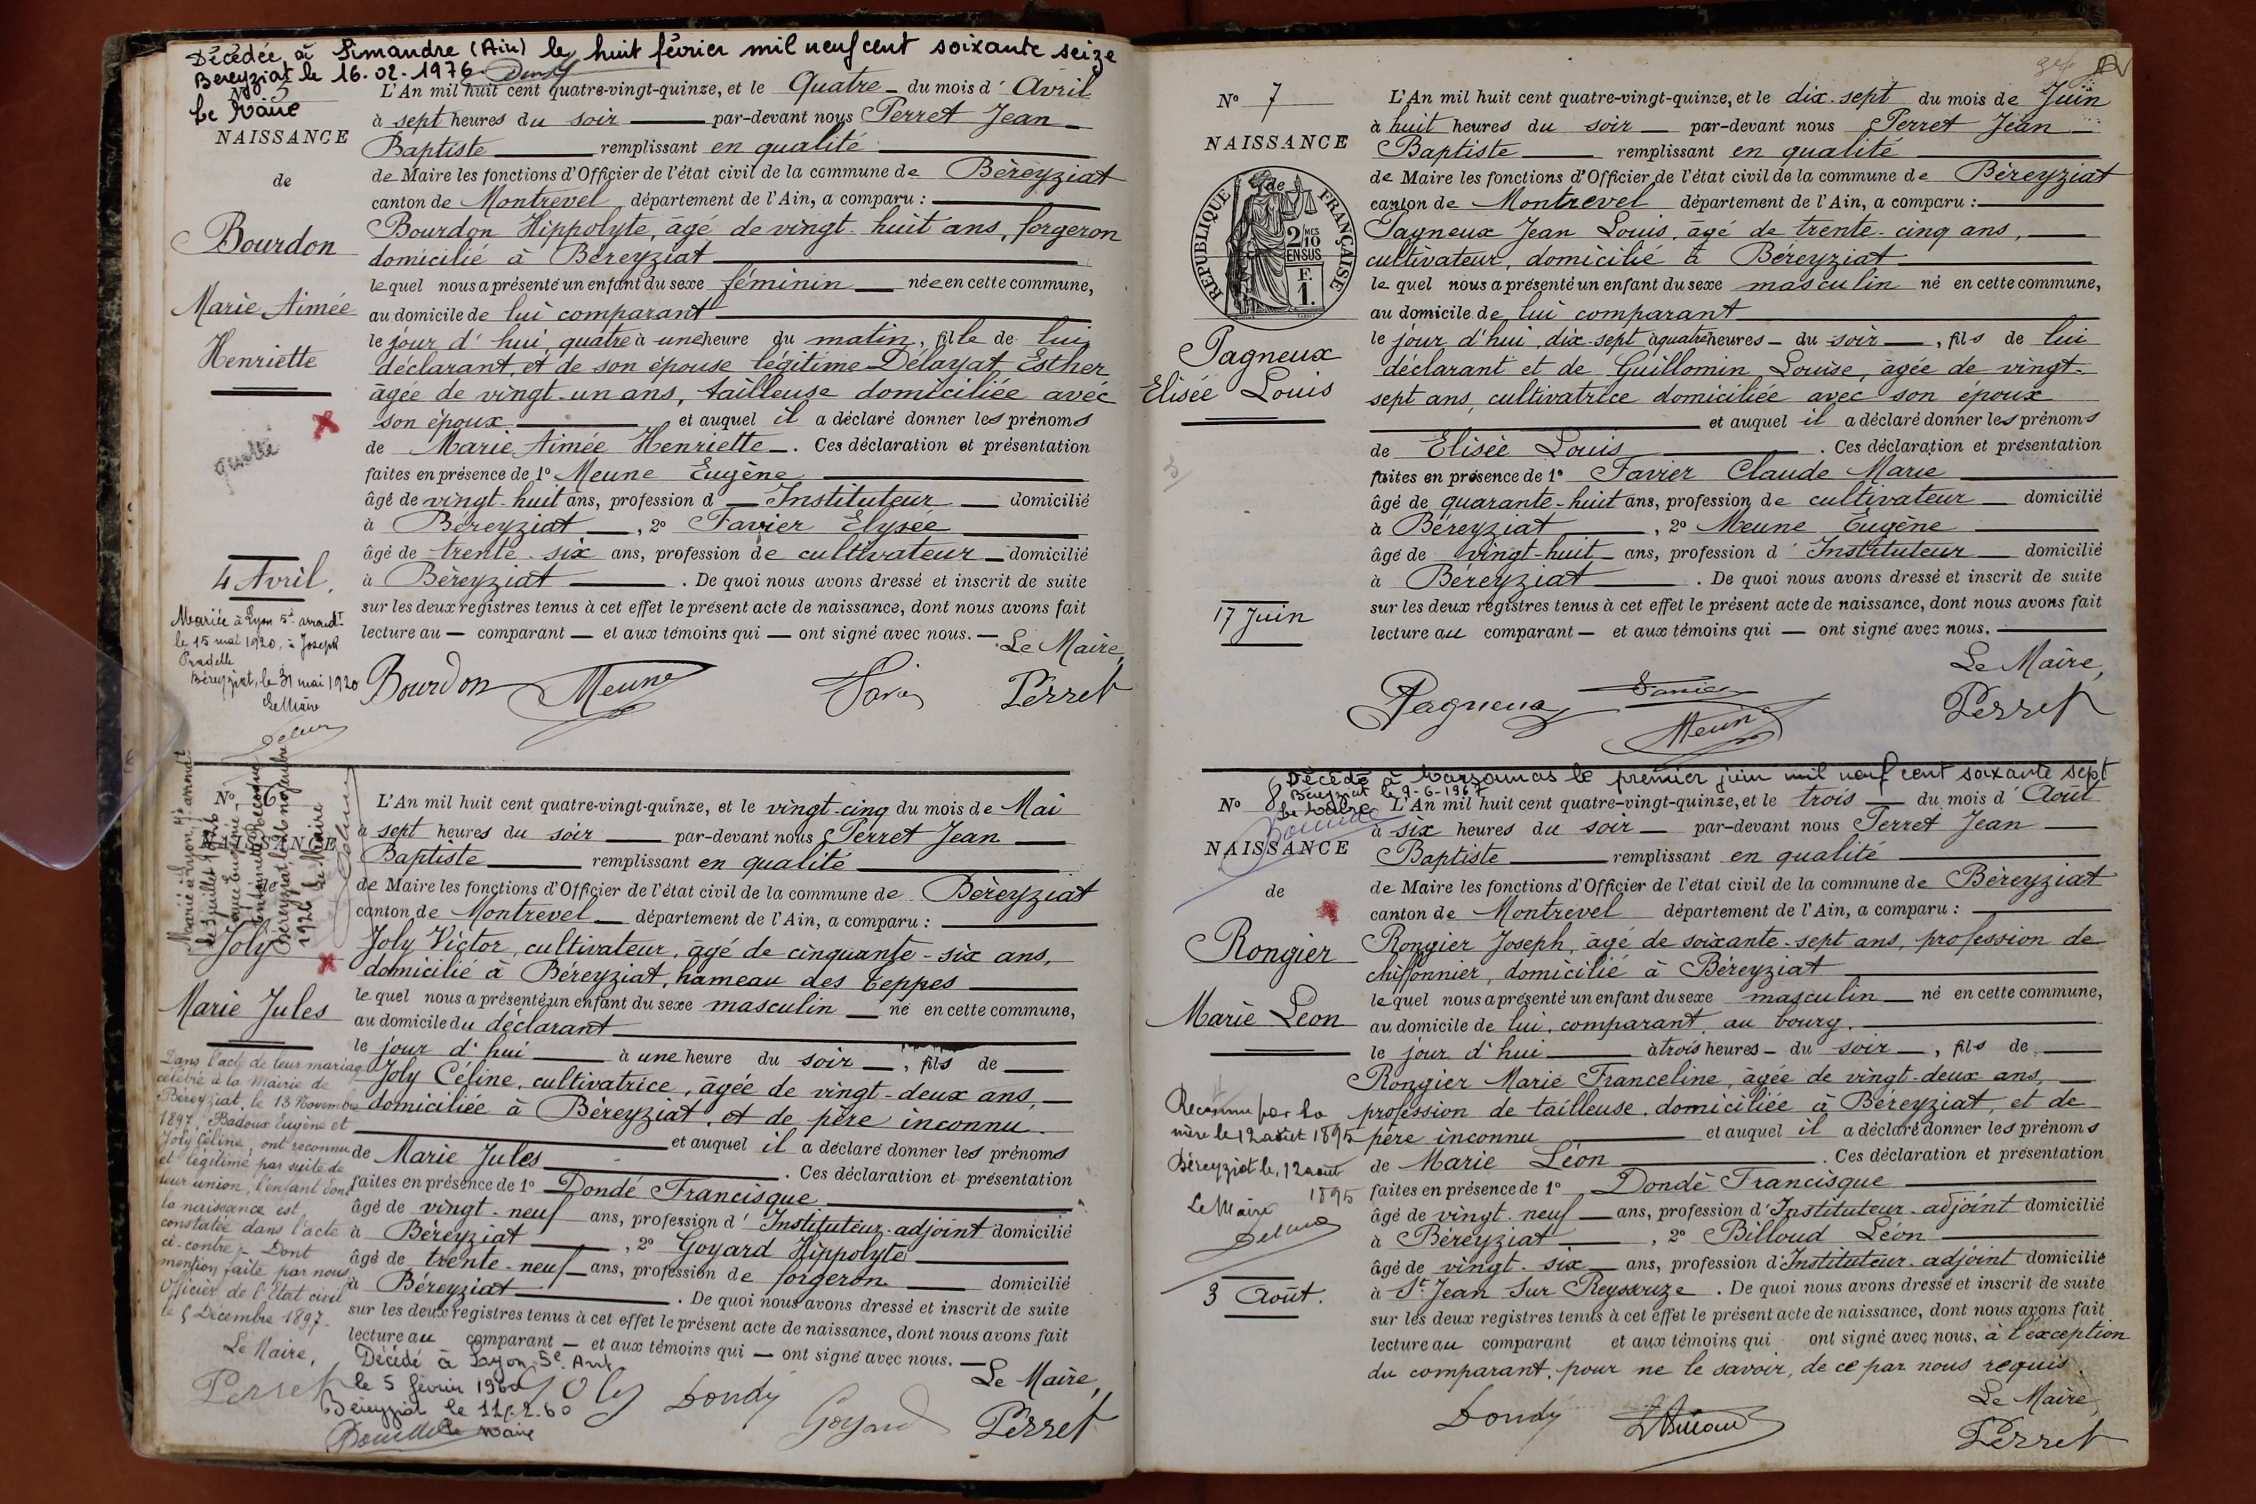 Décédée à Simandre (Ain) le huit février mil neuf cent soixante seize
Bereyziat le 16-02-1976
Le Maire
N° 5
NAISSANCE
de
Bourdon
Marie Aimée
Henriette
4 Avril.
Mariée à Lyon 5e arrondt
le 15 mai 1920, à Joseph
Pradelle
Béreyziat, le 31 mai 1920
Le Maire
L'An mil huit cent quatre-vingt-quinze, et le Quatre du mois d'Avril
à sept heures du soir par-devant nous Perret Jean
Baptiste remplissant en qualité
de Maire les fonctions d'Officier de l'état civil de la commune de Béreyziat
canton de Montrevel, département de l'Ain, a comparu :
Bourdon Hippolyte, âgé de vingt-huit ans, forgeron
domicilié à Béreyziat
lequel nous a présenté un enfant du sexe féminin née en cette commune,
au domicile de lui comparant
le jour d'hui, quatre à une heure du matin, fille de lui
déclarant, et de son épouse légitime Délayat Esther
âgée de vingt-un ans, tailleuse domiciliée avec
son époux et auquel il a déclaré donner les prénoms
de Marie Aimée Henriette. Ces déclaration et présentation
faites en présence de 1° Meune Eugène
âgé de vingt-huit ans, profession d'Instituteur domicilié
à Béreyziat, 2° Favier Elysée
âgé de trente-six ans, profession de cultivateur domicilié
à Béreyziat. De quoi nous avons dressé et inscrit de suite
sur les deux registres tenus à cet effet le présent acte de naissance, dont nous avons fait
lecture au comparant et aux témoins qui ont signé avec nous.
Le Maire,
Bourdon Meune Favier Perret
N° 6
NAISSANCE
de
Joly
Marie Jules
Marié à Lyon, 4e arrondt
le 3 juillet 1926
Béreyziat, le novembre
1926 Le Maire
Dans l'acte de leur mariage
célébré à la Mairie de
Béreyziat, le 13 Novembre
1897, Badoux Eugène et
Joly Céline, ont reconnu
et légitimé par suite de
leur union, l'enfant dont
la naissance est
constatée dans l'acte
ci-contre. Dont
mention faite par nous
Officier de l'Etat civil
le 5 Décembre 1897.
Le Maire,
Perret
L'An mil huit cent quatre-vingt-quinze, et le vingt-cinq du mois de Mai
à sept heures du soir par-devant nous Perret Jean
Baptiste remplissant en qualité
de Maire les fonctions d'Officier de l'état civil de la commune de Béreyziat
canton de Montrevel département de l'Ain, a comparu :
Joly Victor, cultivateur, âgé de cinquante-six ans,
domicilié à Béreyziat, hameau des Teppes
lequel nous a présenté un enfant du sexe masculin né en cette commune,
au domicile du déclarant
le jour d'hui à une heure du soir, fils de
Joly Céline, cultivatrice, âgée de vingt-deux ans,
domiciliée à Béreyziat, et de père inconnu
et auquel il a déclaré donner les prénoms
de Marie Jules. Ces déclaration et présentation
faites en présence de 1° Dondé Francisque
âgé de vingt-neuf ans, profession d'Instituteur-adjoint domicilié
à Béreyziat, 2° Goyard Hippolyte
âgé de trente-neuf ans, profession de forgeron domicilié
à Béreyziat. De quoi nous avons dressé et inscrit de suite
sur les deux registres tenus à cet effet le présent acte de naissance, dont nous avons fait
lecture au comparant et aux témoins qui ont signé avec nous.
Le Maire,
Décédé à Lyon 5e Art
le 5 février 1960
Béreyziat le 11-2-60
Le Maire
Joly Dondé Goyard Perret
N° 7
NAISSANCE
de
RÉPUBLIQUE FRANÇAISE
2/10 MES EN SUS
F. 1.
Pagneux
Elisée Louis
17 Juin
L'An mil huit cent quatre-vingt-quinze, et le dix-sept du mois de Juin
à huit heures du soir par-devant nous Perret Jean
Baptiste remplissant en qualité
de Maire les fonctions d'Officier de l'état civil de la commune de Béreyziat
canton de Montrevel département de l'Ain, a comparu :
Pagneux Jean Louis, âgé de trente-cinq ans,
cultivateur, domicilié à Béreyziat
lequel nous a présenté un enfant du sexe masculin né en cette commune,
au domicile de lui comparant
le jour d'hui, dix-sept à quatre heures du soir, fils de lui
déclarant et de Guillomin Louise, âgée de vingt-
sept ans, cultivatrice domiciliée avec son époux
et auquel il a déclaré donner les prénoms
de Elisée Louis. Ces déclaration et présentation
faites en présence de 1° Favier Claude Marie
âgé de quarante-huit ans, profession de cultivateur domicilié
à Béreyziat, 2° Meune Eugène
âgé de vingt-huit ans, profession d'Instituteur domicilié
à Béreyziat. De quoi nous avons dressé et inscrit de suite
sur les deux registres tenus à cet effet le présent acte de naissance, dont nous avons fait
lecture au comparant et aux témoins qui ont signé avec nous.
Le Maire,
Pagneux Favier Meune Perret
Décédé à Marsonnas le premier juin mil neuf cent soixante sept
Béreyziat le 9-6-1967
Le Maire
N° 8
NAISSANCE
de
Rongier
Marie Léon
Reconnu par la
mère le 12 août 1895
Béreyziat le, 12 août
1895
Le Maire
3 Août.
L'An mil huit cent quatre-vingt-quinze, et le trois du mois d'Août
à six heures du soir par-devant nous Perret Jean
Baptiste remplissant en qualité
de Maire les fonctions d'Officier de l'état civil de la commune de Béreyziat
canton de Montrevel département de l'Ain, a comparu :
Rongier Joseph, âgé de soixante-sept ans, profession de
chiffonnier, domicilié à Béreyziat
lequel nous a présenté un enfant du sexe masculin né en cette commune,
au domicile de lui, comparant, au bourg,
le jour d'hui à trois heures du soir, fils de
Rongier Marie Franceline, âgée de vingt-deux ans,
profession de tailleuse, domiciliée à Béreyziat, et de
père inconnu et auquel il a déclaré donner les prénoms
de Marie Léon. Ces déclaration et présentation
faites en présence de 1° Dondé Francisque
âgé de vingt-neuf ans, profession d'Instituteur-adjoint domicilié
à Béreyziat, 2° Billoud Léon
âgé de vingt-six ans, profession d'Instituteur-adjoint domicilié
à St Jean sur Reyssouze. De quoi nous avons dressé et inscrit de suite
sur les deux registres tenus à cet effet le présent acte de naissance, dont nous avons fait
lecture au comparant et aux témoins qui ont signé avec nous, à l'exception
du comparant, pour ne le savoir, de ce par nous requis.
Le Maire,
Dondé Perret